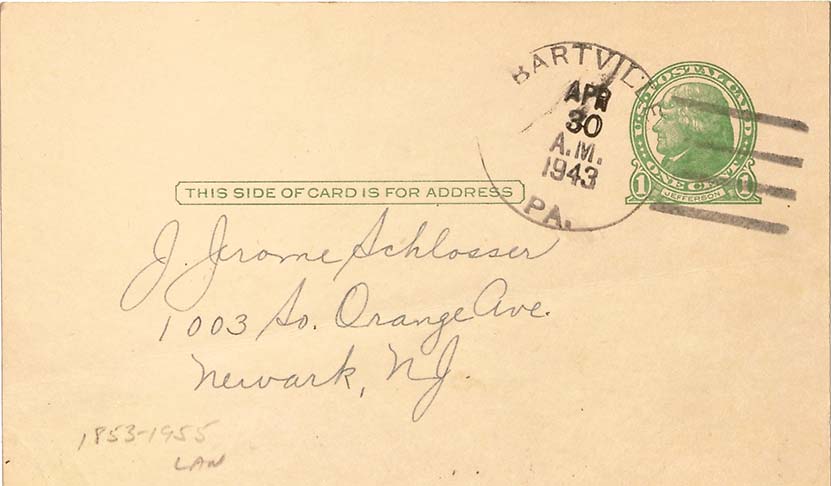 BARTVILLE
APR
30
A.M.
1943
PA.
U.S. POSTAL CARD
ONE CENT
1 JEFFERSON 1
THIS SIDE OF CARD IS FOR ADDRESS
J. Jerome Schlosser
1003 So. Orange Ave.
Newark, NJ.
1853-1955
LAN